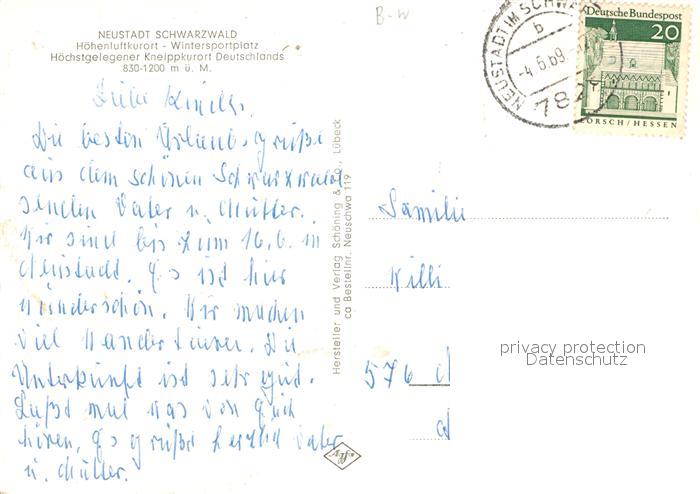 B-W
NEUSTADT SCHWARZWALD
Höhenluftkurort - Wintersportplatz
Höchstgelegener Kneippkurort Deutschlands
830-1200 m ü. M.
NEUSTADT IM SCHWARZW
b
-4.6.69
782
Deutsche Bundespost
20
LORSCH/HESSEN
Liebe Kinder.
Die besten Urlaubsgrüße
aus dem schönen Schwarzwald
senden Vater u. Mutter.
Wir sind bis zum 16.6. in
Neustadt. Es ist hier
wunderschön. Wir machen
viel Wandertouren. Die
Unterkunft ist sehr gut.
Laßt mal was von Euch
hören. Es grüßt herzlich Vater
u. Mutter.
Hersteller und Verlag Schöning & Co., Lübeck
ca Bestellnr. Neuschwa 119
Familie
Willi
576
privacy protection
Datenschutz